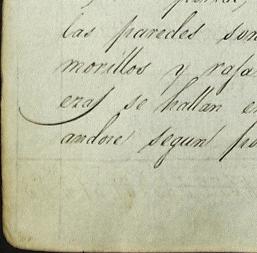 las paredes son
morillos y rafa
eras se hallan e
andore segun po